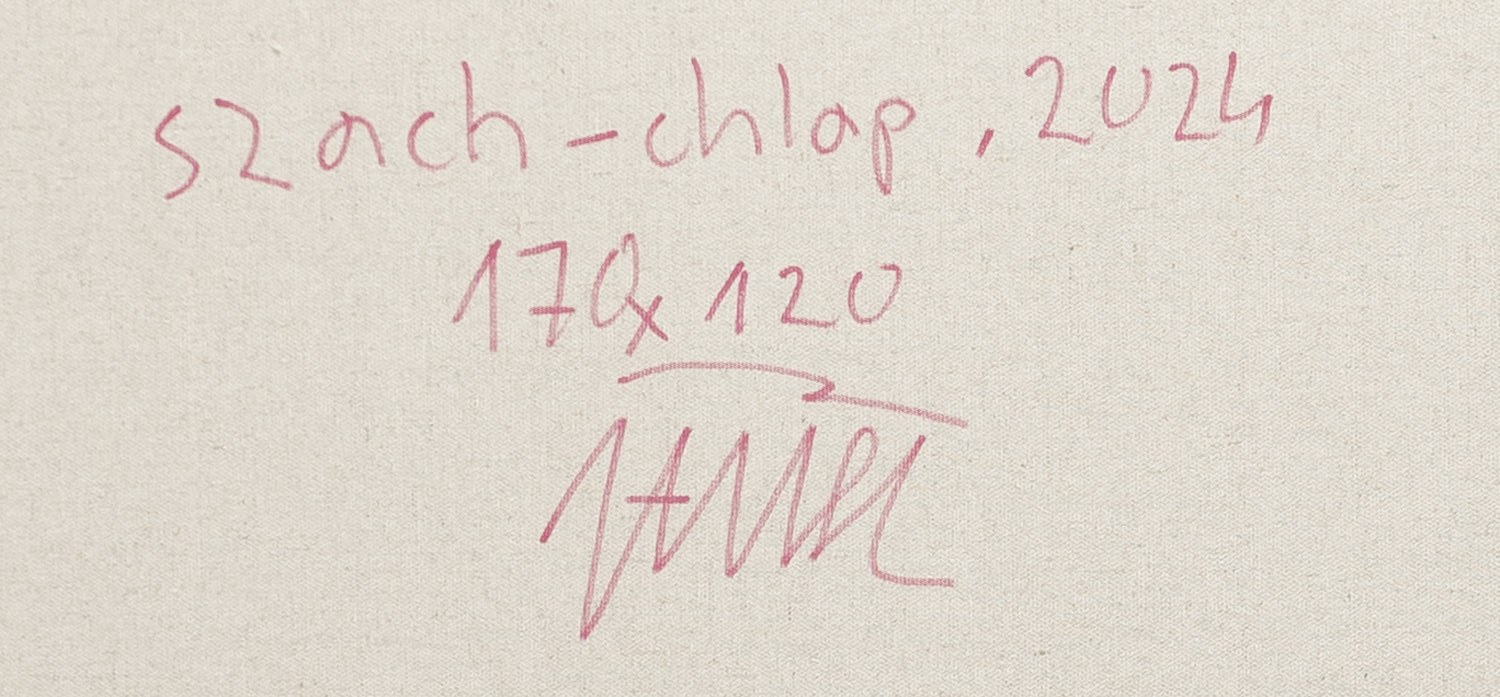 szach-chlap, 2024
170x120